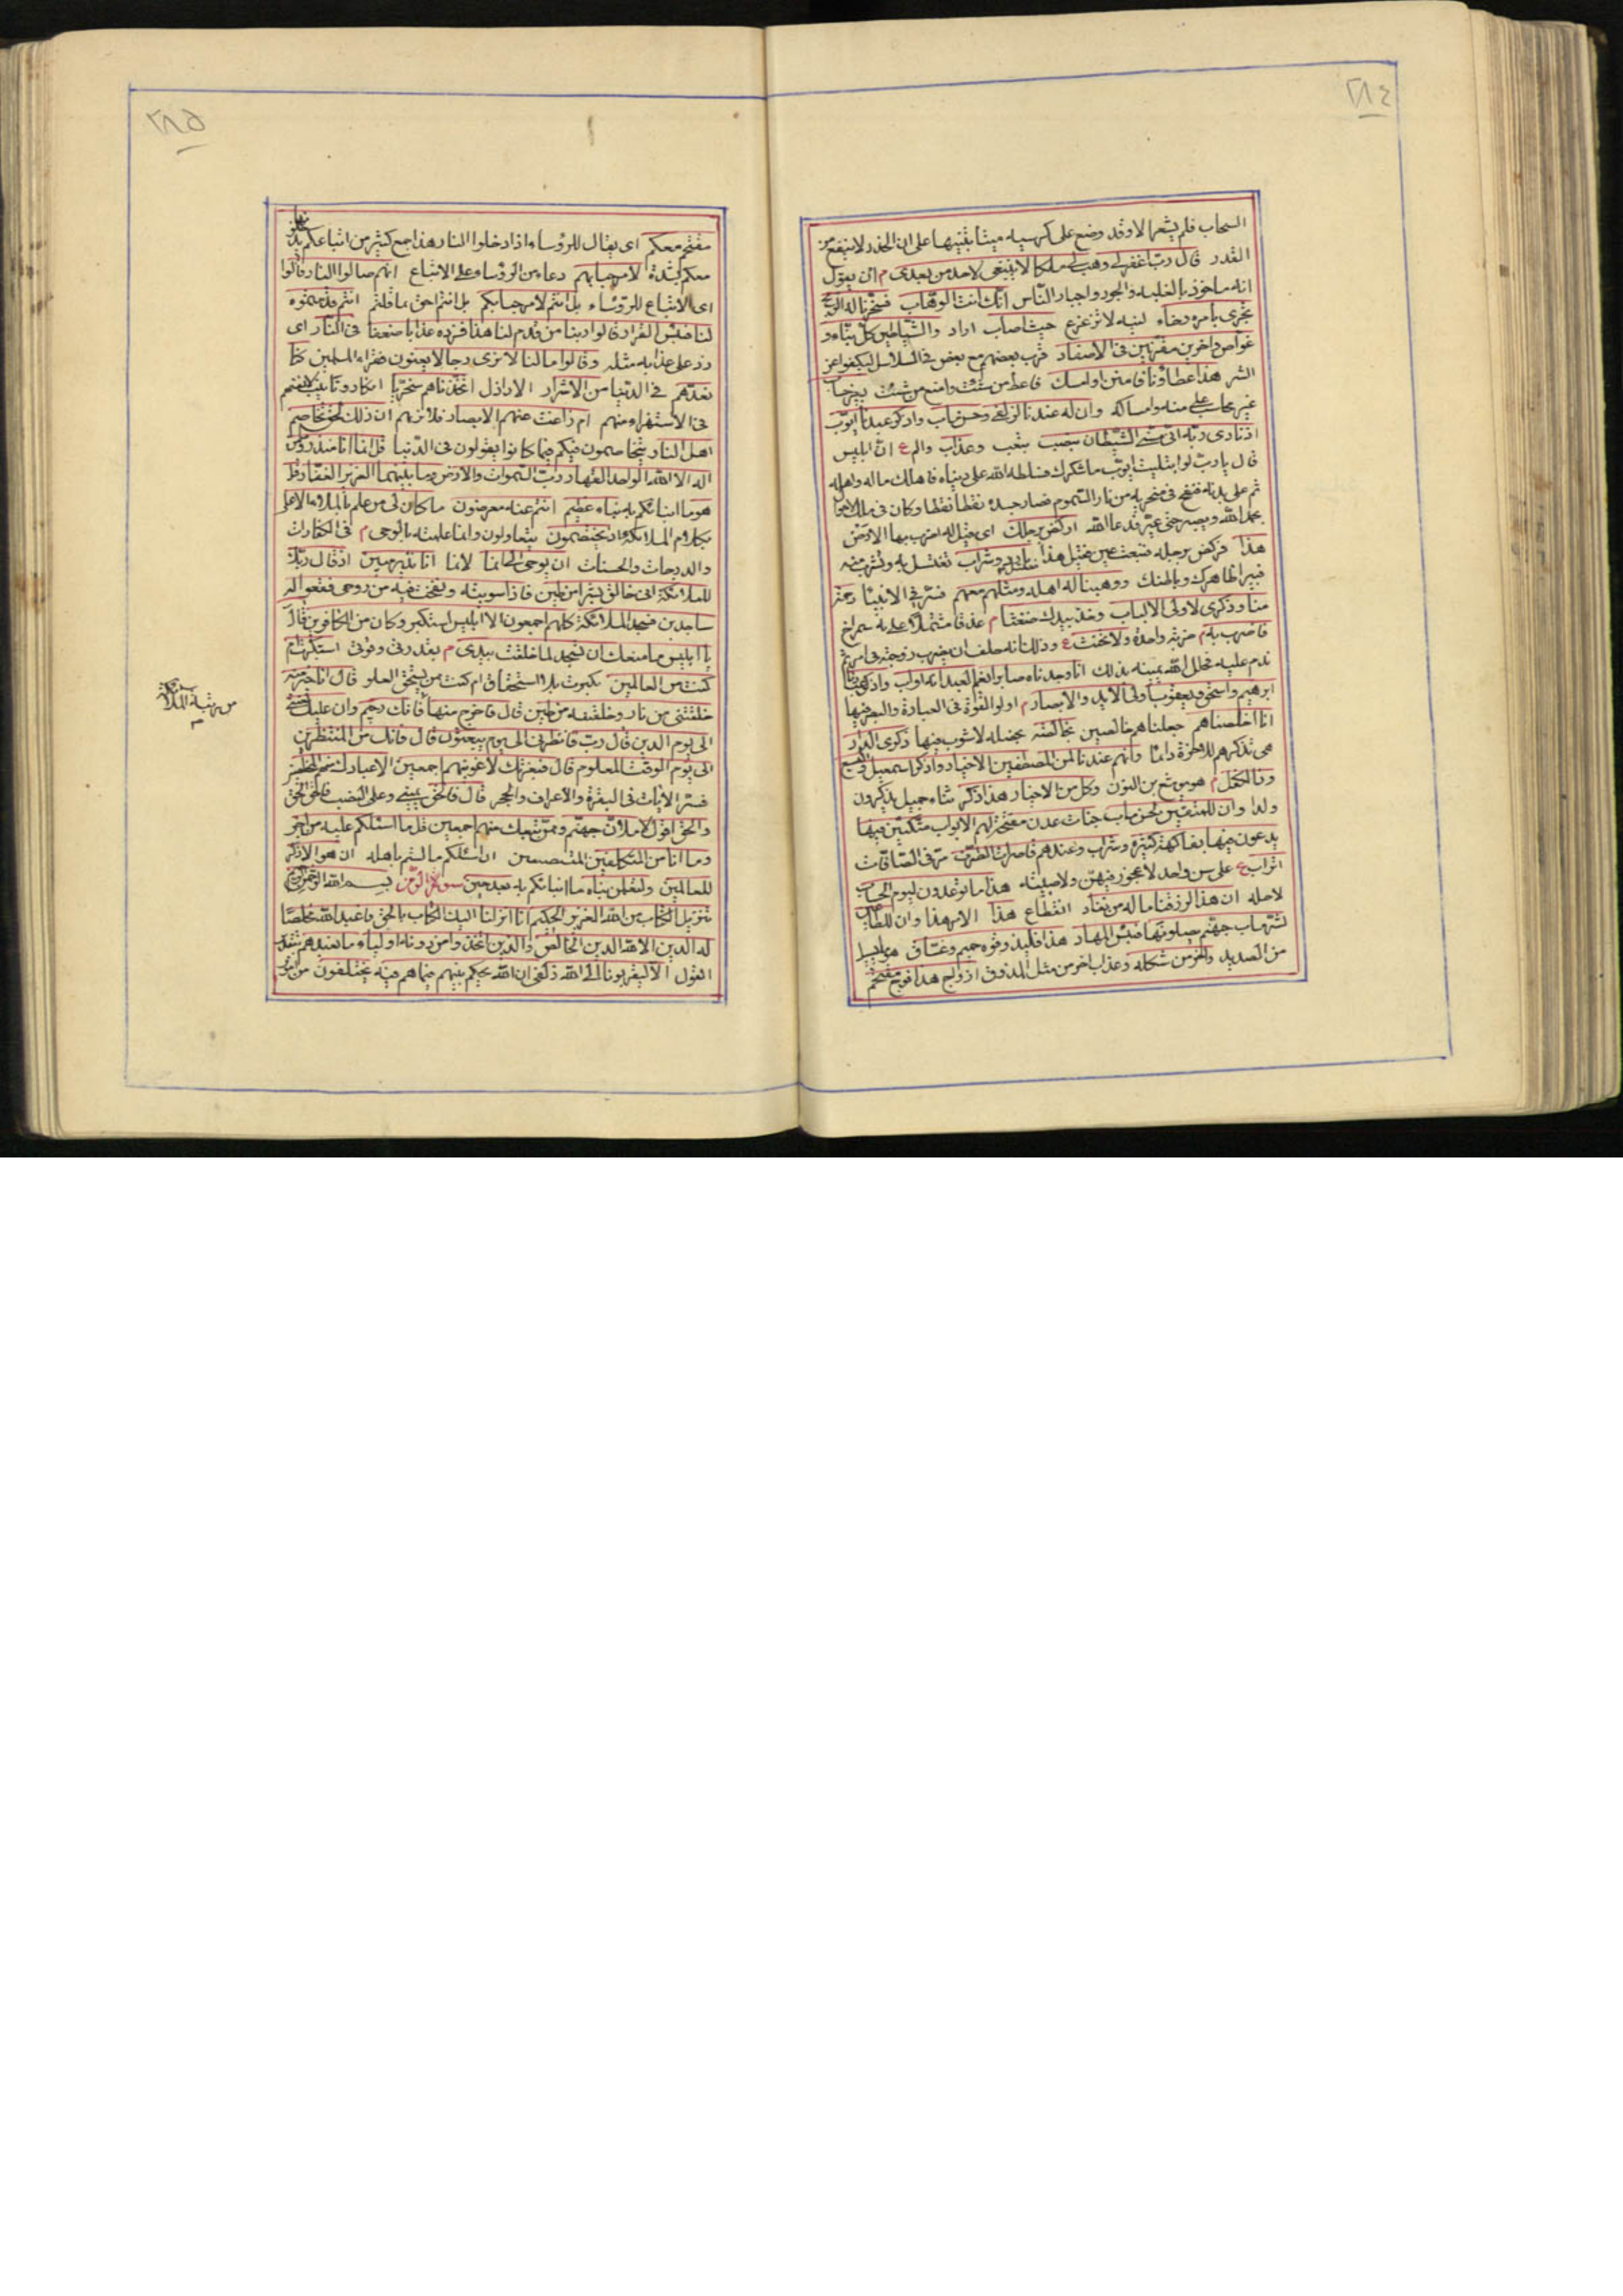 ٢٨٤
السحاب فلم يشعر الا وقد وضع على كرسيه ميتا تنبيها على ان الحذر لا ينفع من
القدر قال رب اغفر لي وهب لي ملكا لا ينبغي لاحد من بعدي م ان يقول
انه ماخوذ بالغلبه والجور واجبار الناس انك انت الوهاب فسخرنا له الريح
تجري بامره رخاء لينه لا تزعزع حيث اصاب اراد والشياطين كل بناء و
غواص واخرين مقرنين في الاصفاد قرن بعضهم مع بعض في السلاسل ليكفوا عن
الشر هذا عطاؤنا فامنن او امسك فاعط من شئت وامنع من شئت بغير حساب
غير محاسب على منه وامساكه وان له عندنا لزلفى وحسن ماب واذكر عبدنا ايوب
اذ نادى ربه اني مسني الشيطان بنصب بتعب وعذاب والم ع ان ابليس
قال يا رب لو ابتليت ايوب ما شكرك فسلطه الله على دنياه فاهلك ماله واهله
ثم على بدنه فنفخ في منخريه من نار السموم فصار جسده نقطا نقطا وكان في ذلك
يحمد الله ويصبر حتى عير فدعا الله اركض برجلك اي قيل له اضرب بها الارض
هذا فركض برجله فنبعت عين فقيل هذا مغتسل بارد وشراب تغتسل به وتشرب منه
فيبرا ظاهرك وباطنك ووهبنا له اهله ومثلهم معهم فسر في الانبيا رحمة
منا وذكرى لاولي الالباب وخذ بيدك ضغثا م عذقا مشتملا على مائة شمراخ
فاضرب به م ضربة واحدة ولا تحنث ع وذلك انه حلف ان يضرب زوجته في امر ثم
ندم عليه فحلل الله يمينه بذلك انا وجدناه صابرا نعم العبد انه اواب واذكر عبادنا
ابرهيم واسحق ويعقوب اولي الايد والابصار م اولوا القوة في العبادة والبصر فيها
انا اخلصناهم جعلناهم خالصين بخالصة بخصلة لا شوب فيها ذكرى الدار
هي تذكرهم للاخرة دائما وانهم عندنا لمن المصطفين الاخيار واذكر اسمعيل واليسع
وذا الكفل م هو يوشع بن النون وكل من الاخيار هذا ذكر ثناء جميل يذكرون
ولدا وان للمتقين لحسن ماب جنات عدن مفتحة لهم الابواب متكئين فيها
يدعون فيها بفاكهة كثيرة وشراب وعندهم قاصرات الطرف مر في الصافات
اتراب ع على سن واحد لا عجوز فيهن ولا صبية هذا ما توعدون ليوم الحساب
لاجله ان هذا لرزقنا ما له من نفاد انقطاع هذا الامر هذا وان للطاغين
لشر ماب جهنم يصلونها فبئس المهاد هذا فليذوقوه حميم وغساق
من الصديد واخر من شكله وعذاب اخر من مثل المذوق ازواج هذا فوج مقتحم
٢٨٥
مقتحم معكم اي يقال للرؤساء اذا دخلوا النار هذا جمع كثير من اتباعكم
معكم لشدة لا مرحبا بهم دعاء من الرؤساء على الاتباع انهم صالوا النار قالوا
اي الاتباع للرؤساء بل انتم لا مرحبا بكم بل انتم احق ما قلتم انتم قدمتموه
لنا فبئس القرار قالوا ربنا من قدم لنا هذا فزده عذابا ضعفا في النار اي
زد على عذابه مثله وقالوا ما لنا لا نرى رجالا يعنون فقراء المسلمين كنا
نعدهم في الدنيا من الاشرار الاراذل اتخذناهم سخريا انكار وتانيب لانفسهم
في الاستهزاء منهم ام زاغت عنهم الابصار فلا نريهم ان ذلك لحق تخاصم
اهل النار يتخاصمون فيكم فيما كانوا يقولون في الدنيا قل انما انا منذر وما من
اله الا الله الواحد القهار رب السموات والارض وما بينهما العزيز الغفار قل
هو ما انباتكم به نباء عظيم انتم عنه معرضون ما كان لي من علم بالملاء الاعلى
بكلام الملائكة اذ يختصمون يتقاولون وانما علمته بالوحي م في الكفارات
والدرجات والحسنات ان يوحى الي انما لانما انا نذير مبين اذ قال ربك
للملائكة اني خالق بشرا من طين فاذا سويته ونفخت فيه من روحي فقعوا له
ساجدين فسجد الملائكة كلهم اجمعون الا ابليس استكبر وكان من الكافرين قال
يا ابليس ما منعك ان تسجد لما خلقت بيدي م بقدرتي وقوتي استكبرت ام
كنت من العالين تكبرت بلا استحقاق ام كنت ممن يستحق العلو قال انا خير منه
خلقتني من نار وخلقته من طين قال فاخرج منها فانك رجيم وان عليك لعنتي
الى يوم الدين قال رب فانظرني الى يوم يبعثون قال فانك من المنتظرين
الى يوم الوقت المعلوم قال فبعزتك لاغوينهم اجمعين الا عبادك منهم المخلصين
فسر الايات في البقرة والاعراف والحجر قال فالحق يميني وعلى النصب فالحق الحق
والحق اقول لاملان جهنم منك وممن تبعك منهم اجمعين قل ما اسئلكم عليه من اجر
وما انا من المتكلفين المتصنعين ان اسئلكم ما لستم باهله ان هو الا ذكر
للعالمين ولتعلمن نباه ما انباتكم به بعد حين سورة الزمر بسم الله الرحمن الرحيم
تنزيل الكتاب من الله العزيز الحكيم انا انزلنا اليك الكتاب بالحق فاعبد الله مخلصا
له الدين الا لله الدين الخالص والذين اتخذوا من دونه اولياء ما نعبدهم بتقدير
القول الا ليقربونا الى الله زلفى ان الله يحكم بينهم فيما هم فيه يختلفون من امر
من رتبة الملائكة